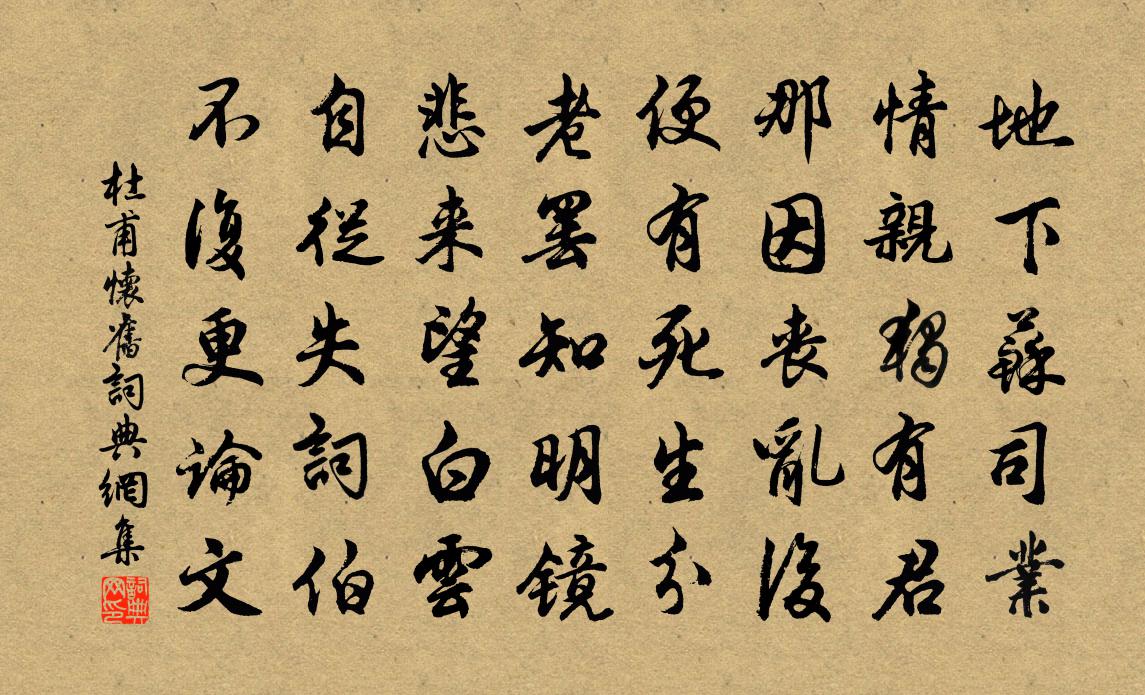 地下蘇司業
情親獨有君
那因喪亂後
便有死生分
老罷知明鏡
悲来望白雲
自從失詞伯
不復更論文
杜甫懷舊詞典網集
詞典网印